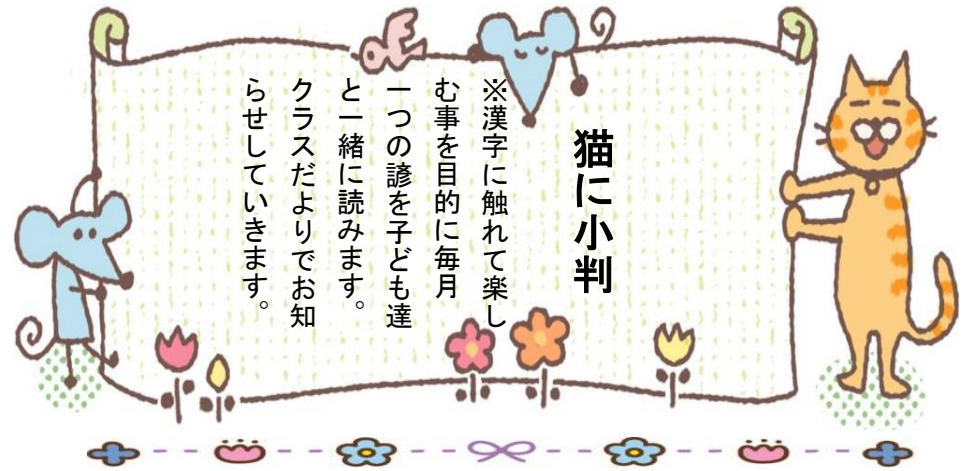 猫に小判
※漢字に触れて楽し
む事を目的に毎月
一つの諺を子ども達
と一緒に読みます。
クラスだよりでお知
らせしていきます。